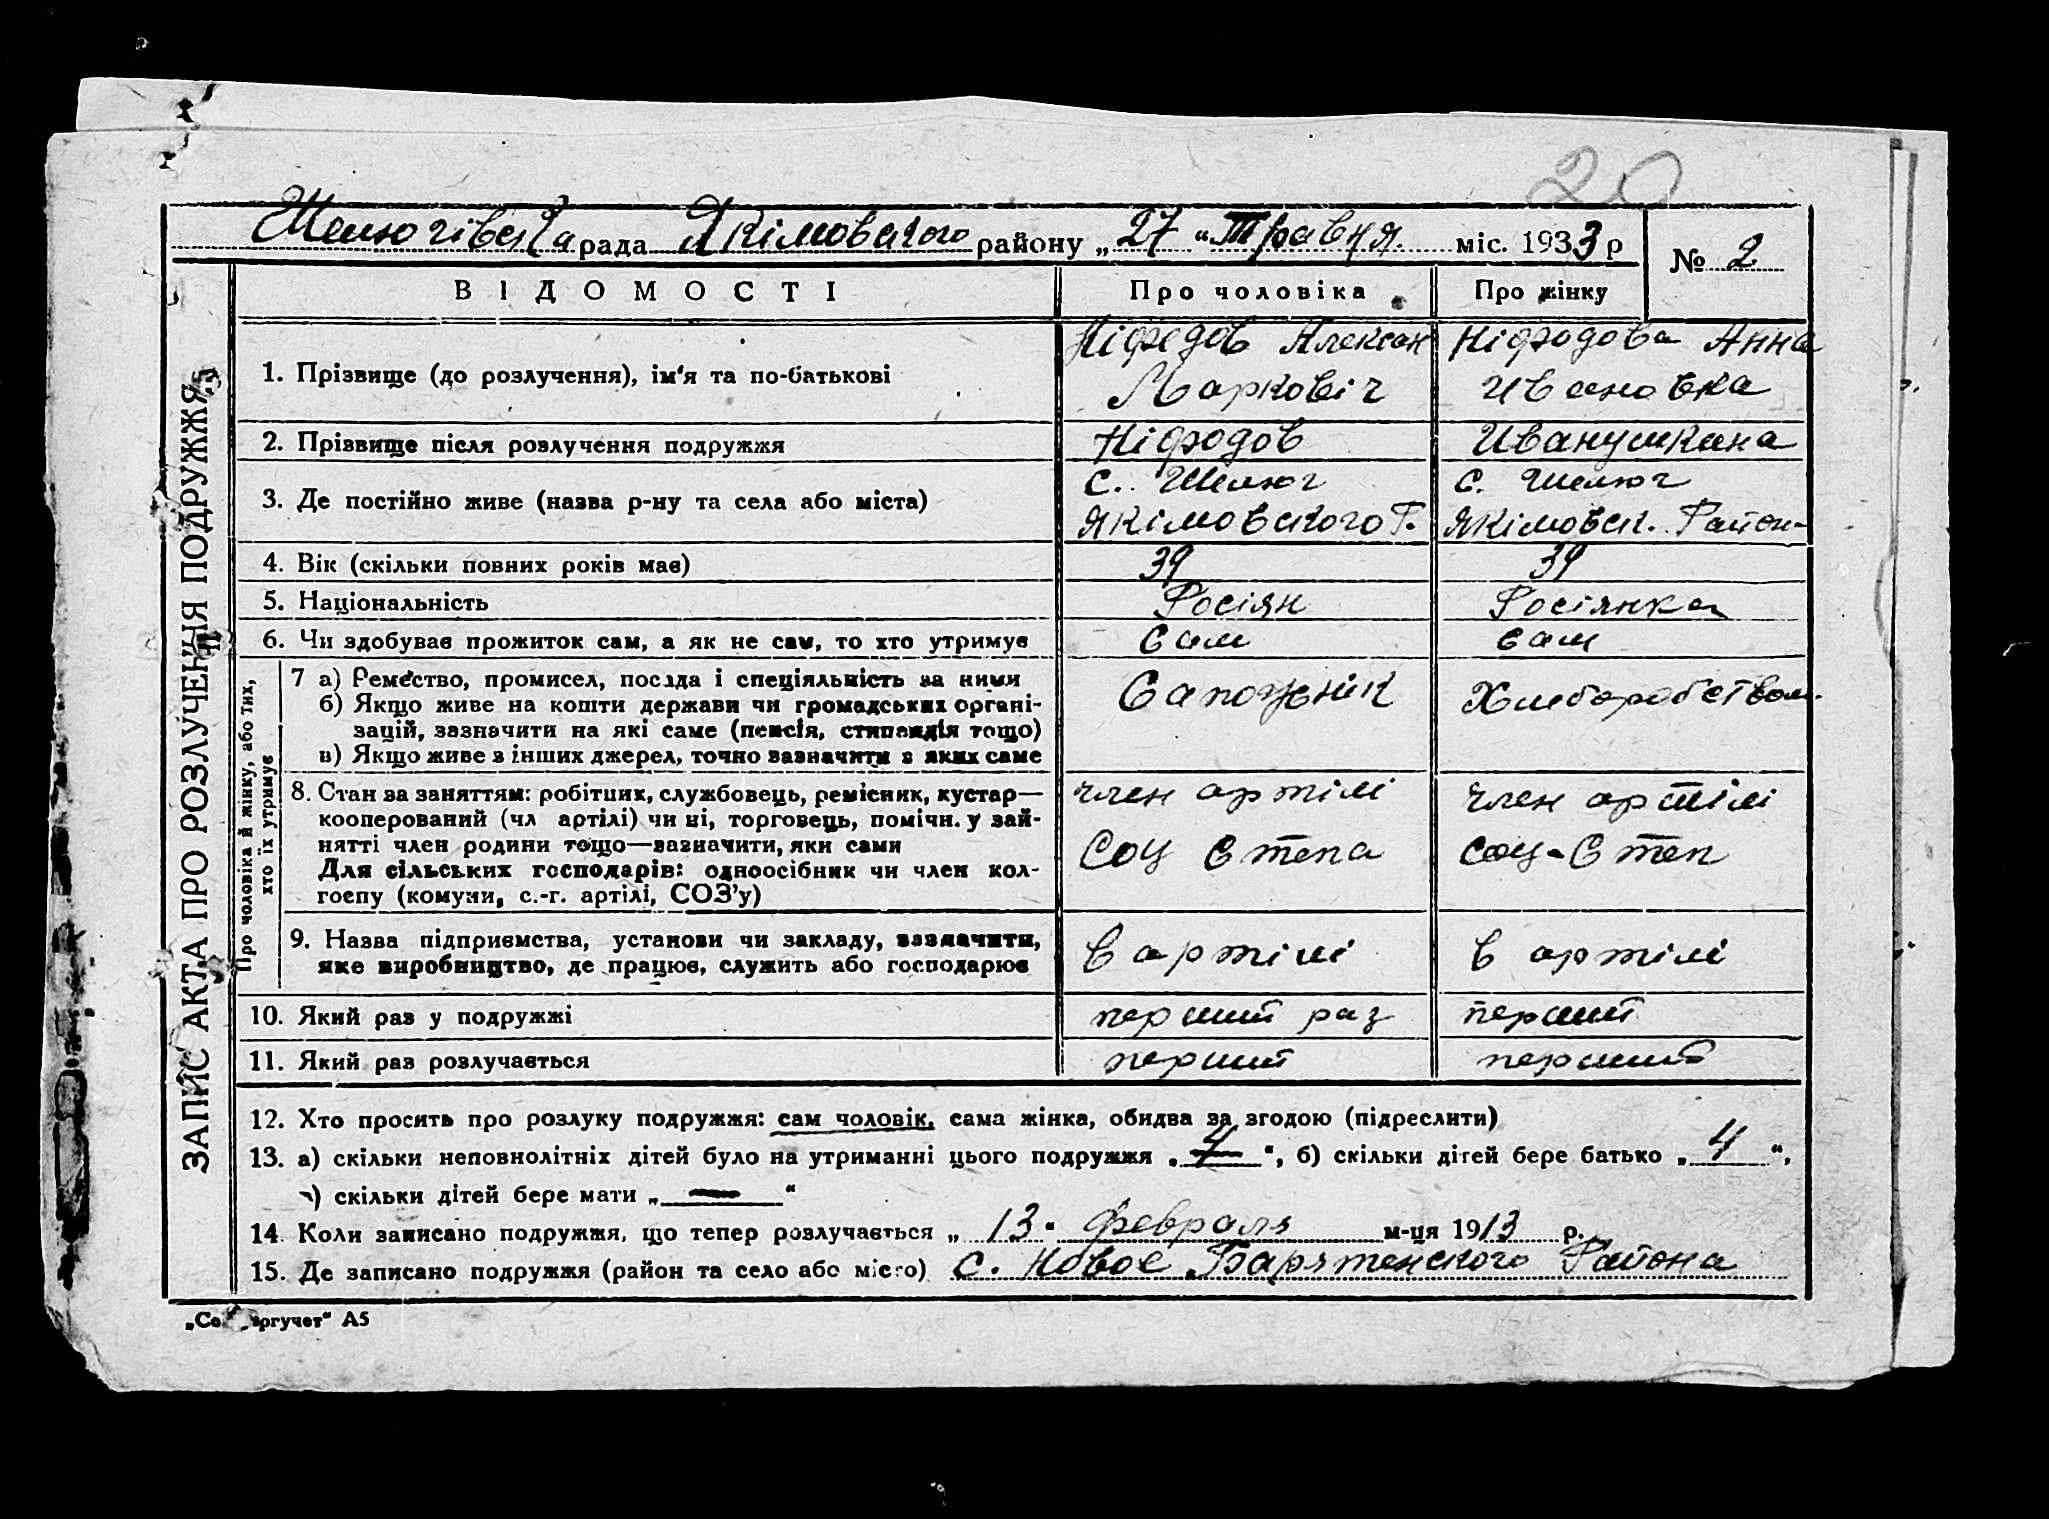 20
Шелюгівська рада Якімовского району „27“ Травня. міс. 1933 р № 2
ВІДОМОСТІ Про чоловіка Про жінку
1. Прізвище (до розлучення), ім'я та по-батькові Ніфедов Алексан Маркович Ніфодова Анна Ивановна
2. Прізвище після розлучення подружжя Ніфодов Иванушкина
3. Де постійно живе (назва р-ну та села або міста) с. Шелюг Якімовского Р. с. Шелюг Якімовск. Район
4. Вік (скільки повних років має) 39 39
5. Національність Росіян Росіянка
6. Чи здобував прожиток сам, а як не сам, то хто утримує Сам сам
7 а) Ремество, промисел, посада і спеціяльність за ними Сапожнік Хлеборобством.
б) Якщо живе на кошти держави чи громадських органі-
зацій, зазначити на які саме (пенсія, стипендія тощо)
в) Якщо живе з інших джерел, точно зазначити з яких саме
8. Стан за заняттям: робітник, службовець, ремісник, кустар— член артілі член артілі
кооперований (чл артілі) чи ні, торговець, помічн. у зай-
нятті член родини тощо—зазначити, яки сами Соц Степа Соц-Степ
Для сільських господарів: одноосібник чи член кол-
госпу (комуни, с.-г. артілі, СОЗ'у)
9. Назва підприємства, установи чи закладу, зазначити, В артілі В артілі
яке виробництво, де працює, служить або господарює
10. Який раз у подружжі перший раз перший
11. Який раз розлучається перший перший
12. Хто просить про розлуку подружжя: сам чоловік, сама жінка, обидва за згодою (підреслити)
13. а) скільки неповнолітніх дітей було на утриманні цього подружжя „4“, б) скільки дітей бере батько „4“,
в) скільки дітей бере мати „—“
14. Коли записано подружжя, що тепер розлучається „13“ февраля м-ця 1913 р.
15. Де записано подружжя (район та село або місто) с. Новое Барятенского Района
ЗАПИС АКТА ПРО РОЗЛУЧЕННЯ ПОДРУЖЖЯ
Про чоловіка й жінку, або тих,
хто їх утримує
А5